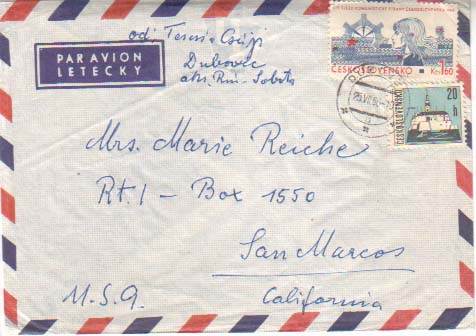 PAR AVION
LETECKY
od: Teresi
Dubovec
okr. Rim. Sobota
ČESKOSLOVENSKO
Kčs 1,60
20 h
ČESKOSLOVENSKO
Mrs. Marie Reiche
Rt. 1 - Box 1550
San Marcos
California
U.S.A.